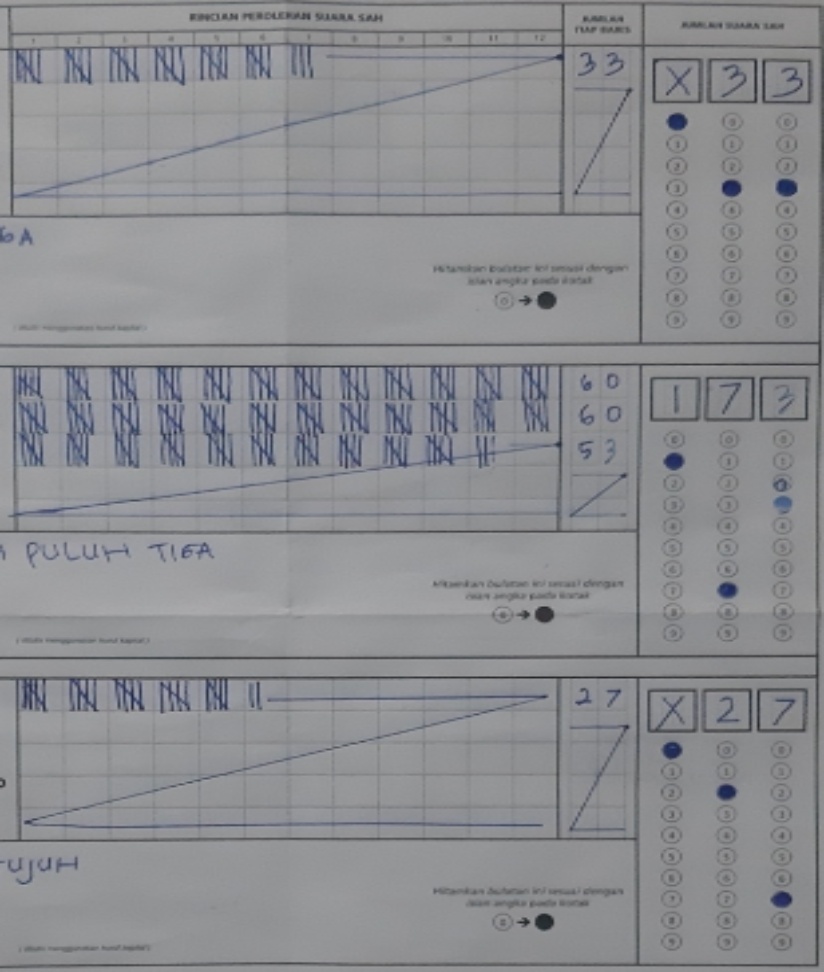 RINCIAN PEROLEHAN SUARA SAH
JUMLAH TIAP BARIS
JUMLAH SUARA SAH
1 2 3 4 5 6 7 8 9 10 11 12
33
X 3 3
GA
Hitamkan bulatan ini sesuai dengan
isian angka pada kotak
(ditulis menggunakan huruf kapital)
60
60
53
1 7 3
PULUH TIGA
Hitamkan bulatan ini sesuai dengan
isian angka pada kotak
(ditulis menggunakan huruf kapital)
27
X 2 7
UJUH
Hitamkan bulatan ini sesuai dengan
isian angka pada kotak
(ditulis menggunakan huruf kapital)